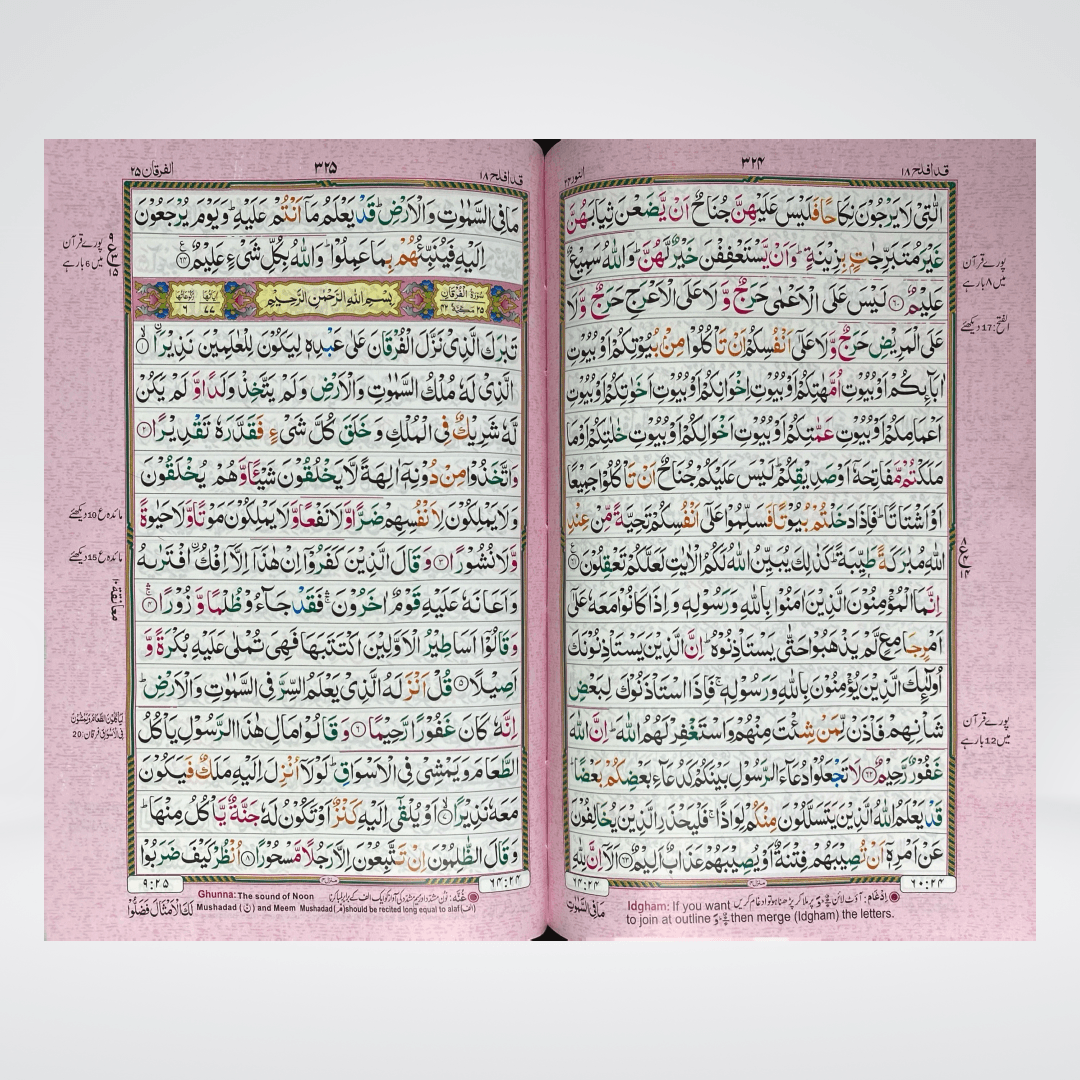 قد افلح ١٨
٣٢٤
النور ٢٤
الّٰتِىۡ لَا يَرۡجُوۡنَ نِكَاحًا فَلَيۡسَ عَلَيۡهِنَّ جُنَاحٌ اَنۡ يَّضَعۡنَ ثِيَابَهُنَّ
غَيۡرَ مُتَبَرِّجٰتٍۭ بِزِيۡنَةٍ‌ ؕ وَاَنۡ يَّسۡتَعۡفِفۡنَ خَيۡرٌ لَّهُنَّ‌ ؕ وَاللّٰهُ سَمِيۡعٌ
عَلِيۡمٌ‏ ﴿۶۰﴾ لَـيۡسَ عَلَى الۡاَعۡمٰى حَرَجٌ وَّلَا عَلَى الۡاَعۡرَجِ حَرَجٌ وَّلَا
عَلَى الۡمَرِيۡضِ حَرَجٌ وَّلَا عَلٰٓى اَنۡفُسِكُمۡ اَنۡ تَاۡكُلُوۡا مِنۡۢ بُيُوۡتِكُمۡ اَوۡ بُيُوۡتِ
اٰبَآٮِٕكُمۡ اَوۡ بُيُوۡتِ اُمَّهٰتِكُمۡ اَوۡ بُيُوۡتِ اِخۡوَانِكُمۡ اَوۡ بُيُوۡتِ اَخَوٰتِكُمۡ اَوۡ بُيُوۡتِ
اَعۡمَامِكُمۡ اَوۡ بُيُوۡتِ عَمّٰتِكُمۡ اَوۡ بُيُوۡتِ اَخۡوَالِكُمۡ اَوۡ بُيُوۡتِ خٰلٰتِكُمۡ اَوۡ مَا
مَلَكۡتُمۡ مَّفَاتِحَهٗۤ اَوۡ صَدِيۡقِكُمۡ‌ؕ لَـيۡسَ عَلَيۡكُمۡ جُنَاحٌ اَنۡ تَاۡكُلُوۡا جَمِيۡعًا
اَوۡ اَشۡتَاتًا‌ ؕ فَاِذَا دَخَلۡتُمۡ بُيُوۡتًا فَسَلِّمُوۡا عَلٰٓى اَنۡفُسِكُمۡ تَحِيَّةً مِّنۡ عِنۡدِ
اللّٰهِ مُبٰرَكَةً طَيِّبَةً‌ ؕ كَذٰلِكَ يُبَيِّنُ اللّٰهُ لَـكُمُ الۡاٰيٰتِ لَعَلَّكُمۡ تَعۡقِلُوۡنَ‏ ﴿۶۱﴾
اِنَّمَا الۡمُؤۡمِنُوۡنَ الَّذِيۡنَ اٰمَنُوۡا بِاللّٰهِ وَرَسُوۡلِهٖ وَاِذَا كَانُوۡا مَعَهٗ عَلٰٓى
اَمۡرٍ جَامِعٍ لَّمۡ يَذۡهَبُوۡا حَتّٰى يَسۡتَاۡذِنُوۡهُ‌ ؕ اِنَّ الَّذِيۡنَ يَسۡتَاۡذِنُوۡنَكَ
اُولٰٓٮِٕكَ الَّذِيۡنَ يُؤۡمِنُوۡنَ بِاللّٰهِ وَرَسُوۡلِهٖ‌ ۚ فَاِذَا اسۡتَاۡذَنُوۡكَ لِبَعۡضِ
شَاۡنِهِمۡ فَاۡذَنۡ لِّمَنۡ شِئۡتَ مِنۡهُمۡ وَاسۡتَغۡفِرۡ لَهُمُ اللّٰهَ‌ ؕ اِنَّ اللّٰهَ
غَفُوۡرٌ رَّحِيۡمٌ‏ ﴿۶۲﴾ لَا تَجۡعَلُوۡا دُعَآءَ الرَّسُوۡلِ بَيۡنَكُمۡ كَدُعَآءِ بَعۡضِكُمۡ بَعۡضًا‌ ؕ
قَدۡ يَعۡلَمُ اللّٰهُ الَّذِيۡنَ يَتَسَلَّلُوۡنَ مِنۡكُمۡ لِوَاذًا‌ ۚ فَلۡيَحۡذَرِ الَّذِيۡنَ يُخَالِفُوۡنَ
عَنۡ اَمۡرِهٖۤ اَنۡ تُصِيۡبَهُمۡ فِتۡنَةٌ اَوۡ يُصِيۡبَهُمۡ عَذَابٌ اَلِيۡمٌ‏ ﴿۶۳﴾ اَلَاۤ اِنَّ لِلّٰهِ
پورے قرآن
میں 8 بار ہے
الفتح: 17 دیکھئے
٨
ع
٤
١٤
پورے قرآن
میں 12 بار ہے
٦٠:٢٤
منزل٤
٦٤:٢٤
Idgham: If you want
to join at outline then merge (Idgham) the letters.
مَا فِى السَّمٰوٰتِ
قد افلح ١٨
٣٢٥
الفرقان ٢٥
مَا فِى السَّمٰوٰتِ وَالۡاَرۡضِ‌ؕ قَدۡ يَعۡلَمُ مَاۤ اَنۡـتُمۡ عَلَيۡهِؕ وَيَوۡمَ يُرۡجَعُوۡنَ
اِلَيۡهِ فَيُنَـبِّـئُـهُمۡ بِمَا عَمِلُوۡا ‌ؕ وَاللّٰهُ بِكُلِّ شَىۡءٍ عَلِيۡمٌ‏ ﴿۶۴﴾
سُوۡرَةُ الۡفُرۡقَانِ ٢٥ مَكِّيَّةٌ ٤٢ بِسۡمِ اللّٰهِ الرَّحۡمٰنِ الرَّحِيۡمِ اٰيَاتُهَا ٧٧ رُكُوۡعَاتُهَا ٦
تَبٰـرَكَ الَّذِىۡ نَزَّلَ الۡـفُرۡقَانَ عَلٰى عَبۡدِهٖ لِيَكُوۡنَ لِلۡعٰلَمِيۡنَ نَذِيۡرًا ۙ‏ ﴿۱﴾
اۨلَّذِىۡ لَهٗ مُلۡكُ السَّمٰوٰتِ وَالۡاَرۡضِ وَلَمۡ يَتَّخِذۡ وَلَدًا وَّلَمۡ يَكُنۡ
لَّهٗ شَرِيۡكٌ فِى الۡمُلۡكِ وَخَلَقَ كُلَّ شَىۡءٍ فَقَدَّرَهٗ تَقۡدِيۡرًا‏ ﴿۲﴾
وَاتَّخَذُوۡا مِنۡ دُوۡنِهٖۤ اٰلِهَةً لَّا يَخۡلُقُوۡنَ شَيۡئًا وَّهُمۡ يُخۡلَقُوۡنَ
وَلَا يَمۡلِكُوۡنَ لِاَنۡفُسِهِمۡ ضَرًّا وَّلَا نَفۡعًا وَّلَا يَمۡلِكُوۡنَ مَوۡتًا وَّلَا حَيٰوةً
وَّلَا نُشُوۡرًا‏ ﴿۳﴾ وَقَالَ الَّذِيۡنَ كَفَرُوۡۤا اِنۡ هٰذَاۤ اِلَّاۤ اِفۡكٌ اۨفۡتَـرٰٮهُ
وَاَعَانَهٗ عَلَيۡهِ قَوۡمٌ اٰخَرُوۡنَ‌ ۛۚ فَقَدۡ جَآءُوۡ ظُلۡمًا وَّزُوۡرًا‌ ۛۚ‏ ﴿۴﴾
وَقَالُوۡۤا اَسَاطِيۡرُ الۡاَوَّلِيۡنَ اكۡتَتَبَهَا فَهِىَ تُمۡلٰى عَلَيۡهِ بُكۡرَةً وَّ
اَصِيۡلًا‏ ﴿۵﴾ قُلۡ اَنۡزَلَهُ الَّذِىۡ يَعۡلَمُ السِّرَّ فِى السَّمٰوٰتِ وَالۡاَرۡضِ‌ؕ
اِنَّهٗ كَانَ غَفُوۡرًا رَّحِيۡمًا‏ ﴿۶﴾ وَقَالُوۡا مَالِ هٰذَا الرَّسُوۡلِ يَاۡكُلُ
الطَّعَامَ وَيَمۡشِىۡ فِى الۡاَسۡوَاقِ‌ ؕ لَوۡلَاۤ اُنۡزِلَ اِلَيۡهِ مَلَكٌ فَيَكُوۡنَ
مَعَهٗ نَذِيۡرًا ۙ‏ ﴿۷﴾ اَوۡ يُلۡقٰٓى اِلَيۡهِ كَنۡزٌ اَوۡ تَكُوۡنُ لَهٗ جَنَّةٌ يَّاۡكُلُ مِنۡهَا‌ ؕ
وَقَالَ الظّٰلِمُوۡنَ اِنۡ تَتَّبِعُوۡنَ اِلَّا رَجُلًا مَّسۡحُوۡرًا‏ ﴿۸﴾ اُنْظُرۡ كَيۡفَ ضَرَبُوۡا
پورے قرآن
میں 6 بار ہے
٩
ع
٣
١٥
مائدہ ع 10 دیکھئے
مائدہ ع 15 دیکھئے
معانقة
لَيَاۡكُلُوۡنَ الطَّعَامَ وَيَمۡشُوۡنَ
فِى الۡاَسۡوَاقِ فرقان: 20
٦٤:٢٤
منزل٤
٩:٢٥
Ghunna: The sound of Noon
Mushadad (نّ) and Meem Mushadad (مّ) should be recited long equal to alaf (الف)
لَـكَ الۡاَمۡثَالَ فَضَلُّوۡا